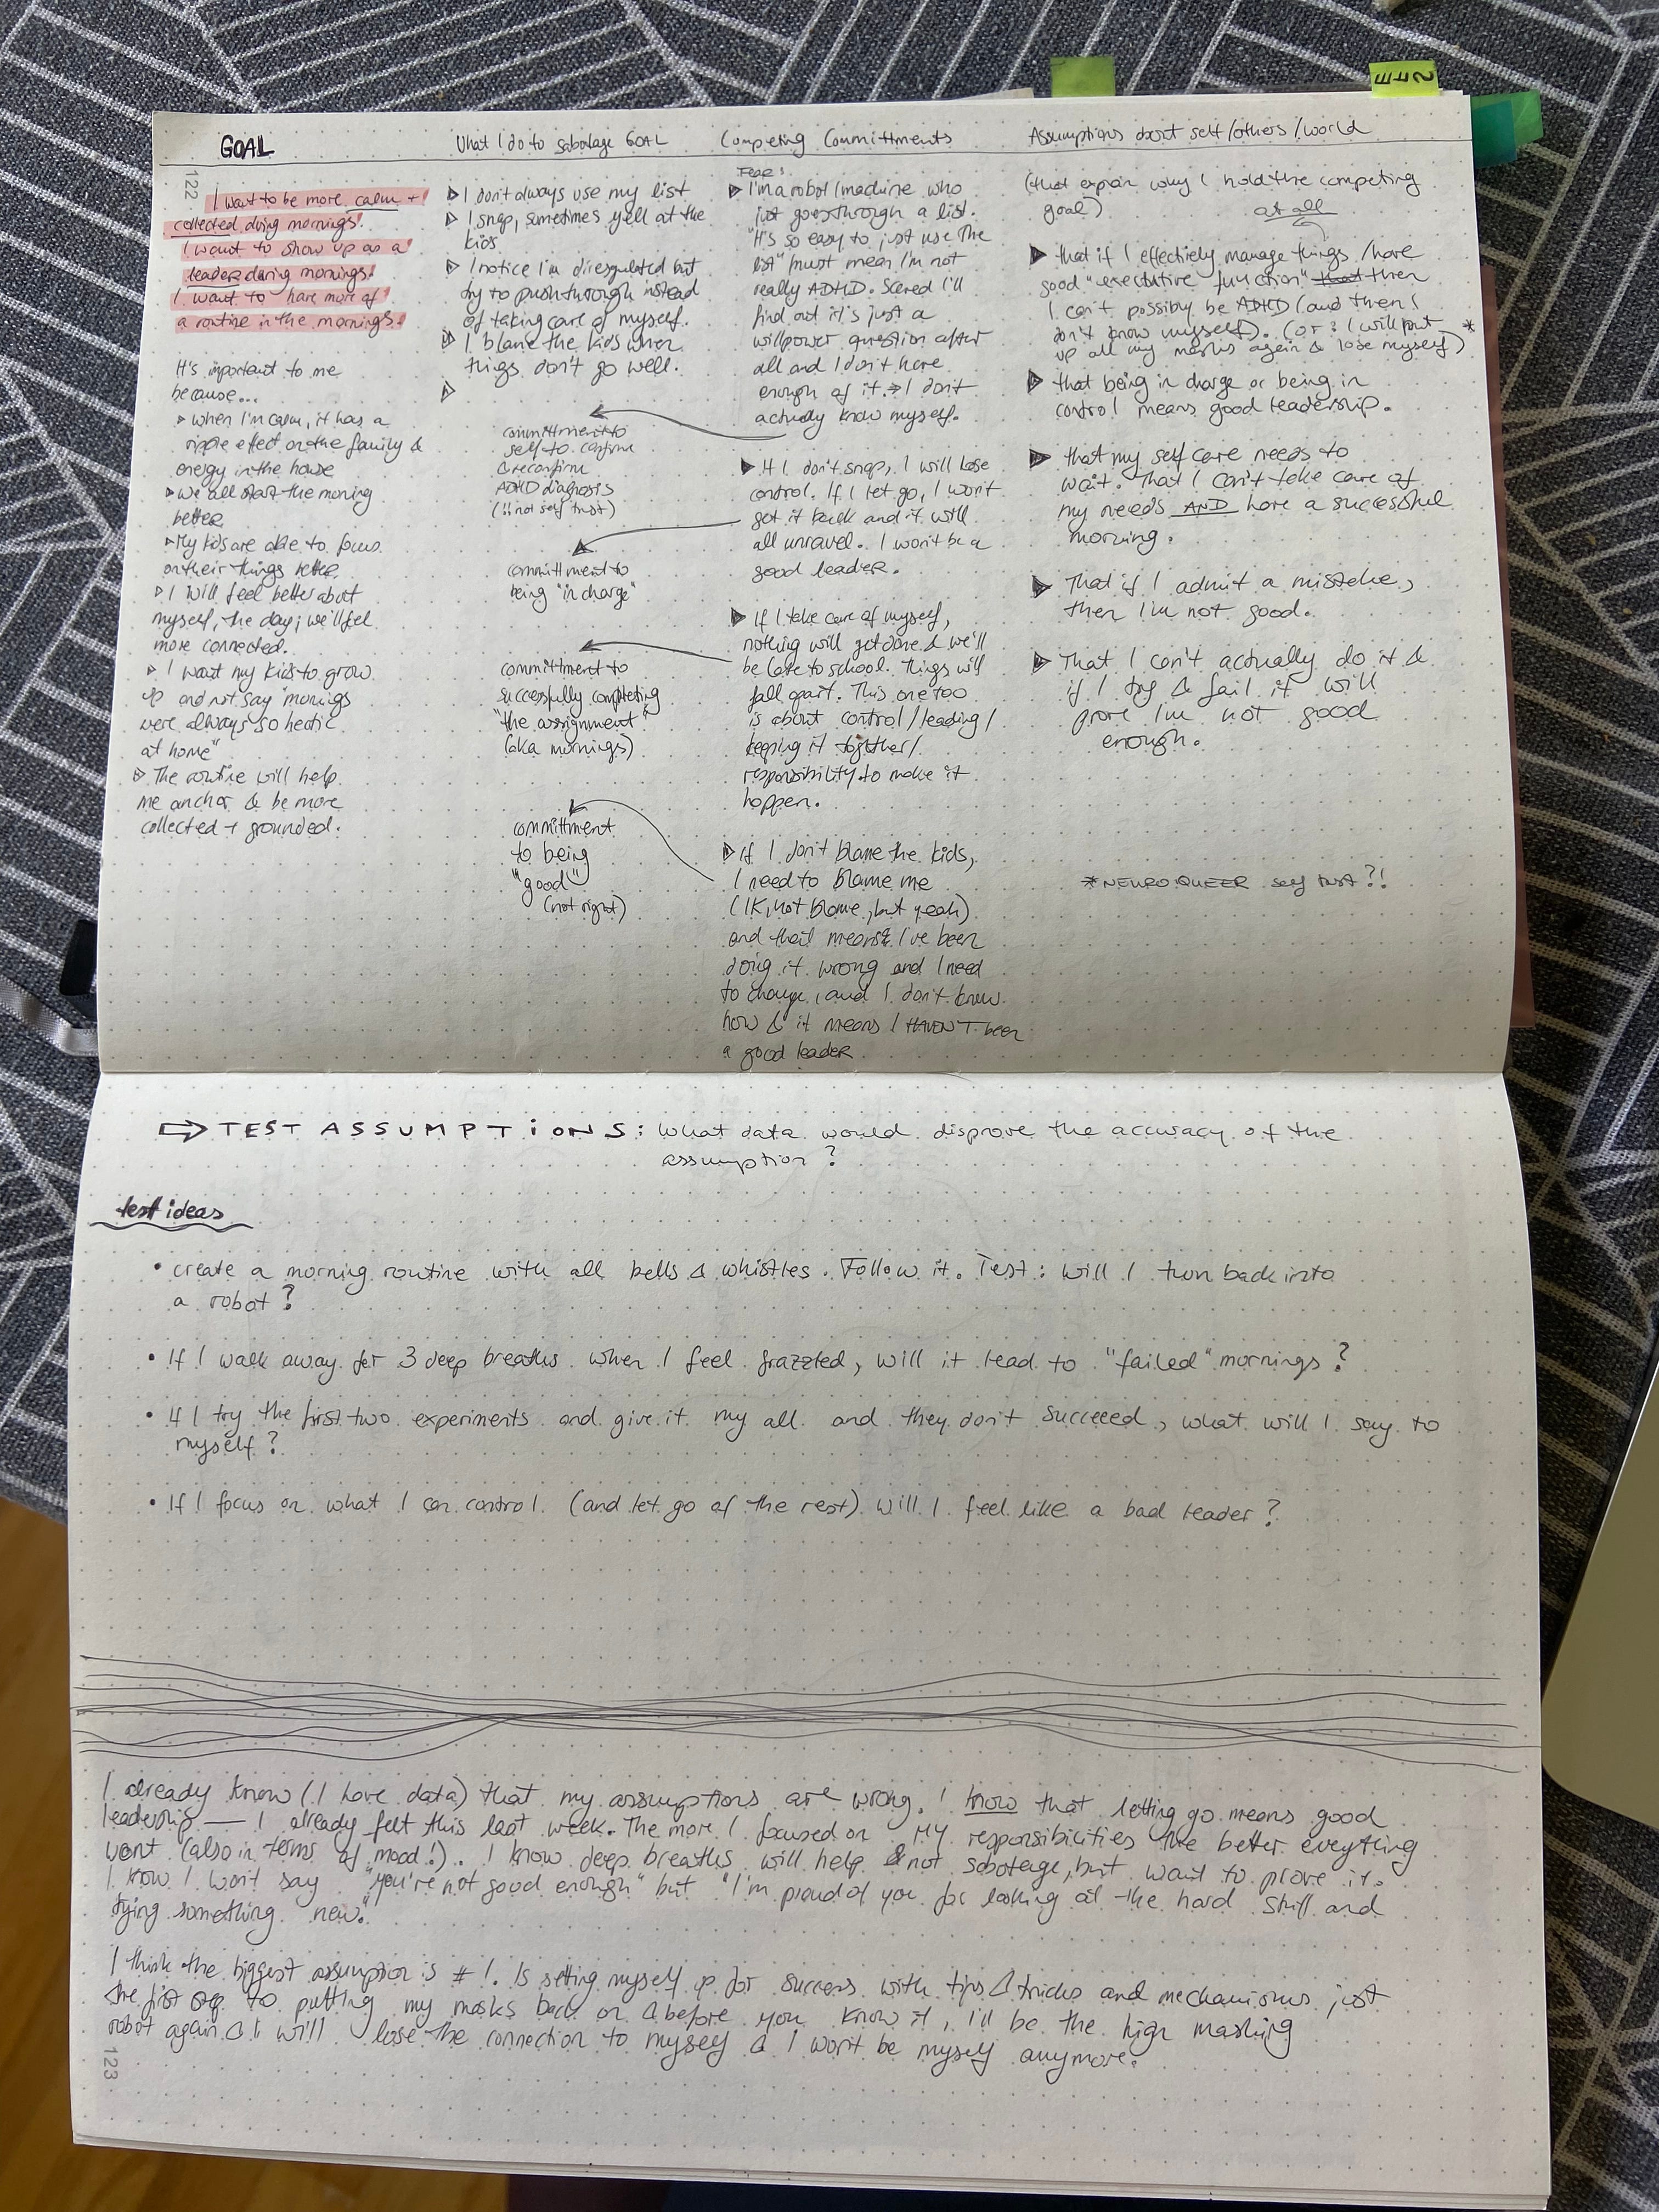 STE
122
GOAL
I want to be more calm +
collected doing mornings.
I want to show up as a
leader during mornings.
I want to have more of
a routine in the mornings.
It's important to me
because...
when I'm calm, it has a
ripple effect on the family &
energy in the house
we all start the morning
better
My kids are able to focus
on their things better.
I will feel better about
myself, the day; we'll feel
more connected.
I want my kids to grow
up and not say "mornings
were always so hectic
at home"
The routine will help
me anchor & be more
collected + grounded.
What I do to sabotage GOAL
I don't always use my list
I snap, sometimes yell at the
kids
I notice I'm disregulated but
try to push through instead
of taking care of myself.
I blame the kids when
things don't go well.
committment to
self to confirm
& reconfirm
ADHD diagnosis
(!! not self trust)
committment to
being "in charge"
committment to
successfully completing
"the assignment"
(aka mornings)
committment
to being
"good"
(not right)
Competing Committments
Fear:
I'm a robot/machine who
just goes through a list.
"It's so easy to just use the
list" / must mean I'm not
really ADHD. Scared I'll
find out it's just a
willpower question after
all and I don't have
enough of it. → I don't
actually know myself.
If I don't snap, I will lose
control. If I let go, I won't
get it back and it will
all unravel. I won't be a
good leader.
If I take care of myself,
nothing will get done & we'll
be late to school. Things will
fall apart. This one too
is about control/leading/
keeping it together/
responsibility to make it
happen.
If I don't blame the kids,
I need to blame me
(IK, not blame, but yeah)
and that means I've been
doing it wrong and I need
to change, and I don't know
how & it means I HAVEN'T been
a good leader
Assumptions about self/others/world
(that explain why I hold the competing
goal) at all
that if I effectively manage things/have
good "executive function" that then
I can't possibly be ADHD (and then I
don't know myself). (or: I will put *
up all my masks again & lose myself)
that being in charge or being in
control means good leadership.
that my self care needs to
wait. That I can't take care of
my needs AND have a successful
morning.
That if I admit a mistake,
then I'm not good.
That I can't actually do it &
if I try & fail it will
prove I'm not good
enough.
*NEUROQUEER say what?!
⇒ TEST ASSUMPTIONS: What data would disprove the accuracy of the
assumption?
test ideas
• create a morning routine with all bells & whistles. Follow it. Test: Will I turn back into
a robot?
• If I walk away for 3 deep breaths when I feel frazzled, will it lead to "failed" mornings?
• If I try the first two experiments and give it my all and they don't succeed, what will I say to
myself?
• If I focus on what I can control (and let go of the rest) will I feel like a bad leader?
I already know (I have data) that my assumptions are wrong. I know that letting go means good
leadership — I already felt this last week. The more I focused on MY responsibilities the better everything
went (also in terms of mood!). I know deep breaths will help & not sabotage, but want to prove it.
I know I won't say "you're not good enough" but "I'm proud of you for looking at the hard stuff and
trying something new."
I think the biggest assumption is #1. Is setting myself up for success with tips & tricks and mechanisms just
the first step to putting my masks back on & before you know it, I'll be the high masking
robot again & I will lose the connection to myself & I won't be myself anymore.
123